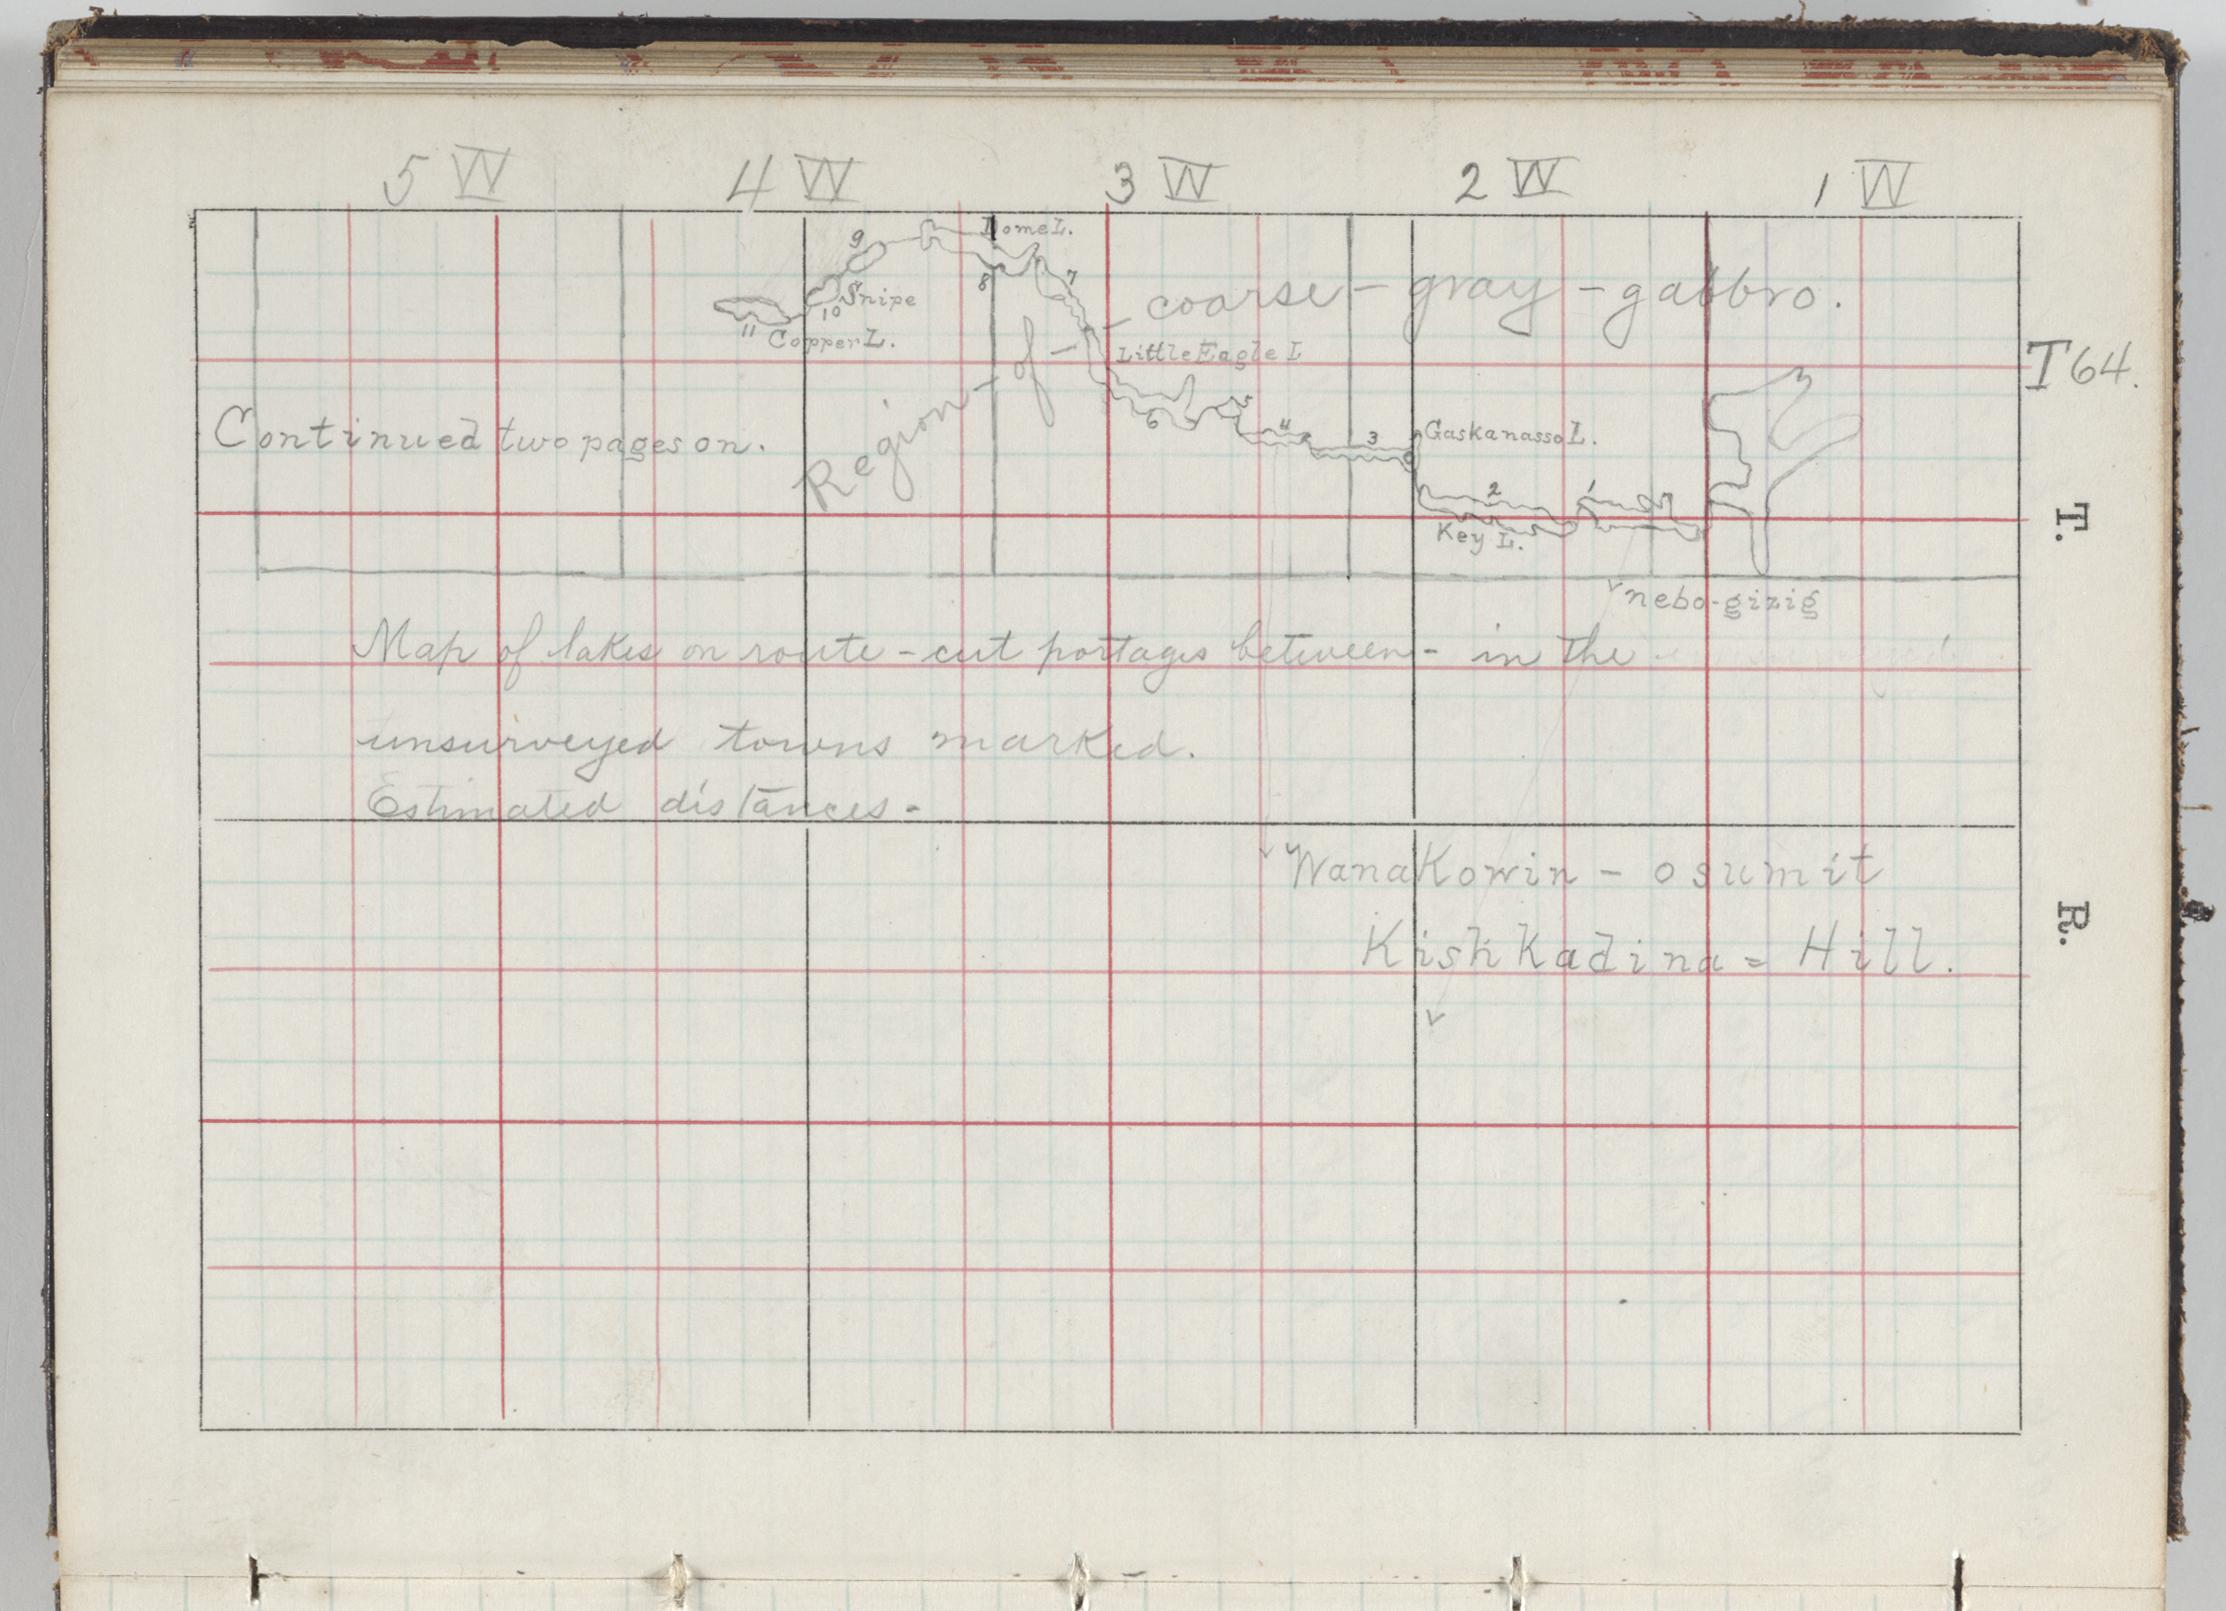 5 W 4 W 3 W 2 W 1 W
Dome L.
9
8
7
Snipe
10
11
Copper L.
Region - of - coarse - gray - gabbro.
Little Eagle L
T 64.
Continued two pages on.
6
5
4
3
Gaskanasso L.
2
1
Key L.
T.
nebo-gizig
Map of lakes on route - cut portages between - in the
unsurveyed towns marked.
Estimated distances -
WanaKowin - osumit
R.
KishKadina = Hill.